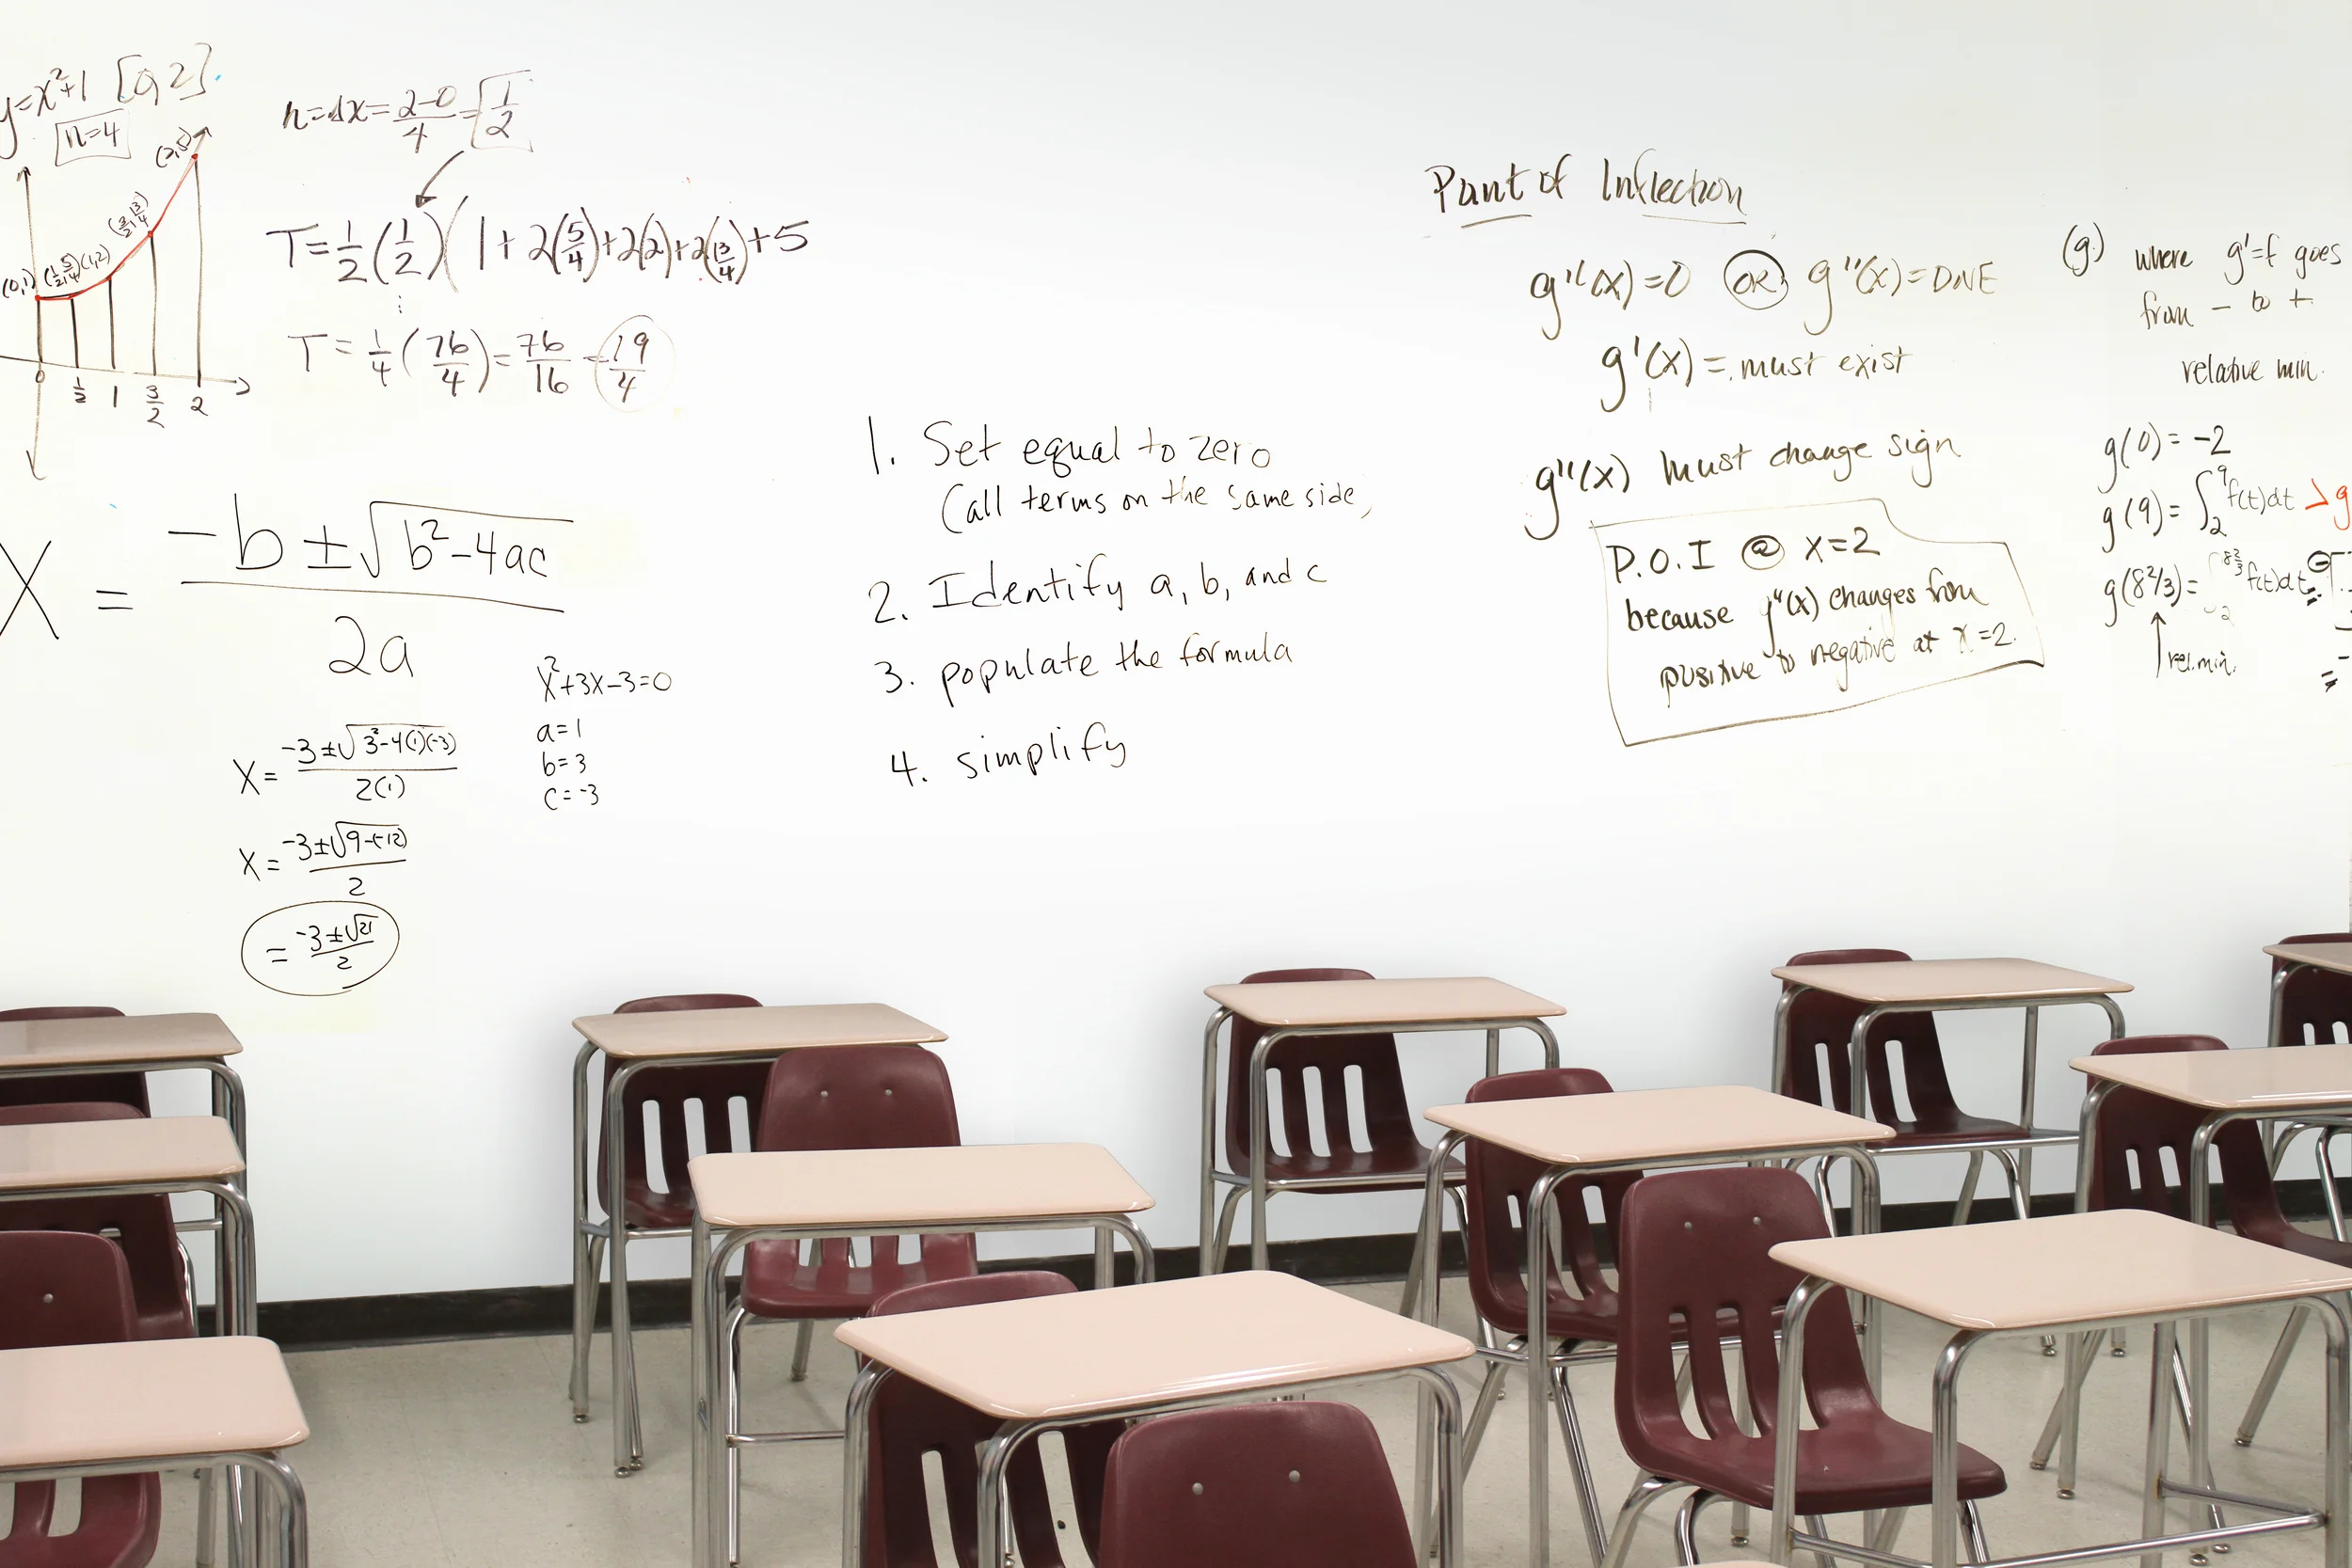 y=x²+1 [0,2]
n=4
(2,5)
(3/2,13/4)
(0,1) (1/2,5/4) (1,2)
0 1/2 1 3/2 2
h=Δx=2-0/4=1/2
T=1/2(1/2)(1+2(5/4)+2(2)+2(13/4)+5
T=1/4(76/4)=76/16=19/4
X = -b±√b²-4ac/2a
x²+3x-3=0
a=1
b=3
c=-3
X=-3±√3²-4(1)(-3)/2(1)
X=-3±√9-(-12)/2
=-3±√21/2
1. Set equal to zero
(all terms on the same side)
2. Identify a, b, and c
3. populate the formula
4. simplify
Point of Inflection
g''(x)=0 OR g''(x)=DNE
g'(x)=must exist
g''(x) must change sign
P.O.I @ x=2
because g''(x) changes from
positive to negative at x=2.
(g) where g'=f goes
from - to +
relative min.
g(0)=-2
g(9)=∫₂⁹f(t)dt
g(8 2/3)=∫₂^(8 2/3) f(t)dt
rel.min.